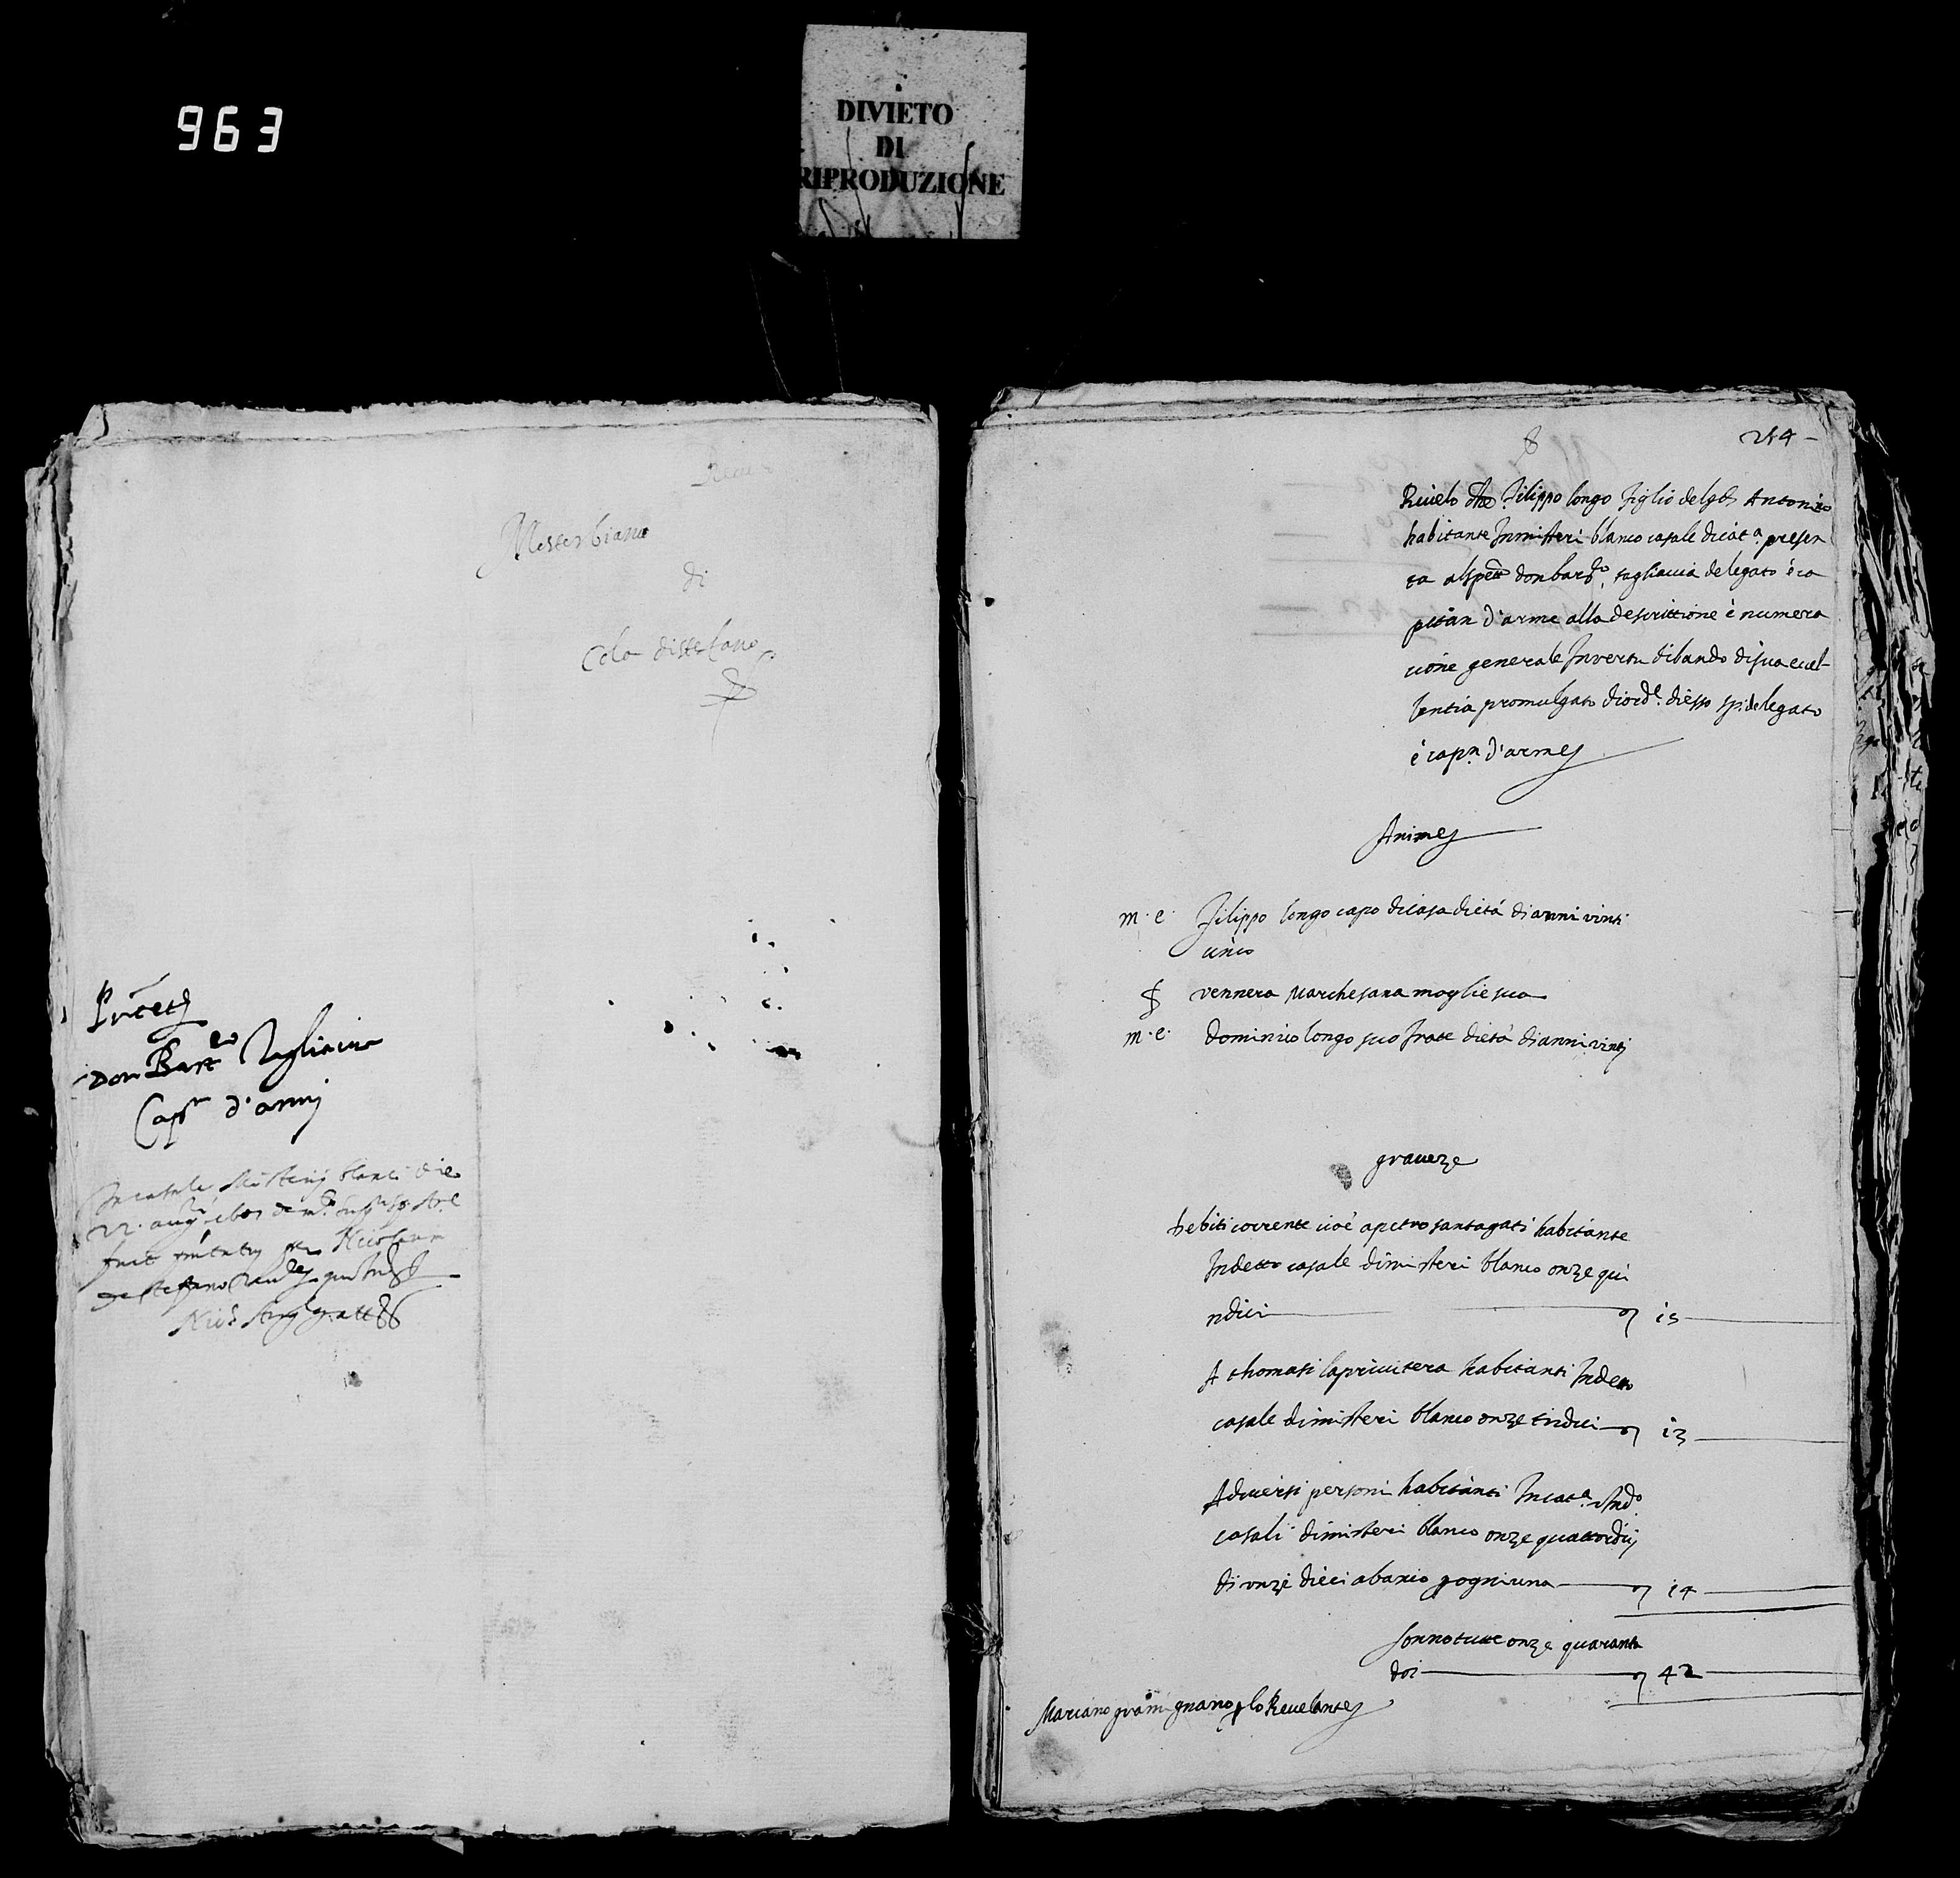 963
DIVIETO
DI
RIPRODUZIONE
Mesterbianco
di
Cola distefano
Don Bart.eo Tagliavia
Cap.n d'armj
In casale Misterij blanci die
22. aug.ti
fuit
de stefano
254
Rivelo che filippo longo figlio del q.o Antonino
habitante In misteri blanco casale di cat.a presen
ta al spett. don bart.o tagliavia delegato è ca
pitan d'arme alla descrittione è numera
cione generale In vertu di bando di sua ecel-
lentia promulgato di ord.e di esso sp. delegato
è cap.n d'arme
Anime
m. e. filippo longo capo di casa di età di anni vinti
cinco
vennera Marchesana moglie sua
m. e. Dominico longo suo frate di età di anni vintj
graveze
Debiti corrente cioè a petro santagati habitante
In detto casale di misteri blanco onze qui
ndici 15
A thomasi la privitera habitanti In detto
casale di misteri blanco onze tridici 13
A diversi personi habitanti In cat.a In d.o
casali di misteri blanco onze quattordicj
14
sonno tutte onze quaranta
doi 42
Marcano gramignano p lo Revelante